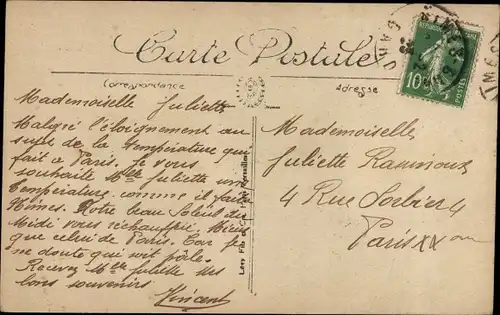 Carte Postale
Correspondance
Adresse
10
POSTES
Mademoiselle Juliette
Malgré l'éloignement au
sujet de la température qui
fait a Paris. Je vous
souhaite Mlle Juliette une
Température comme il fait
Nimes. Notre beau Soleil du
Midi vous réchauffrie. Mieux
que celui de Paris. Car je
me doute qui soit pâle.
Recevez Mlle Juliette mes
bons souvenirs
Vincent
Lévy Fils et Cie
Mademoiselle
Juliette
4 Rue Sorbier 4
Paris XX